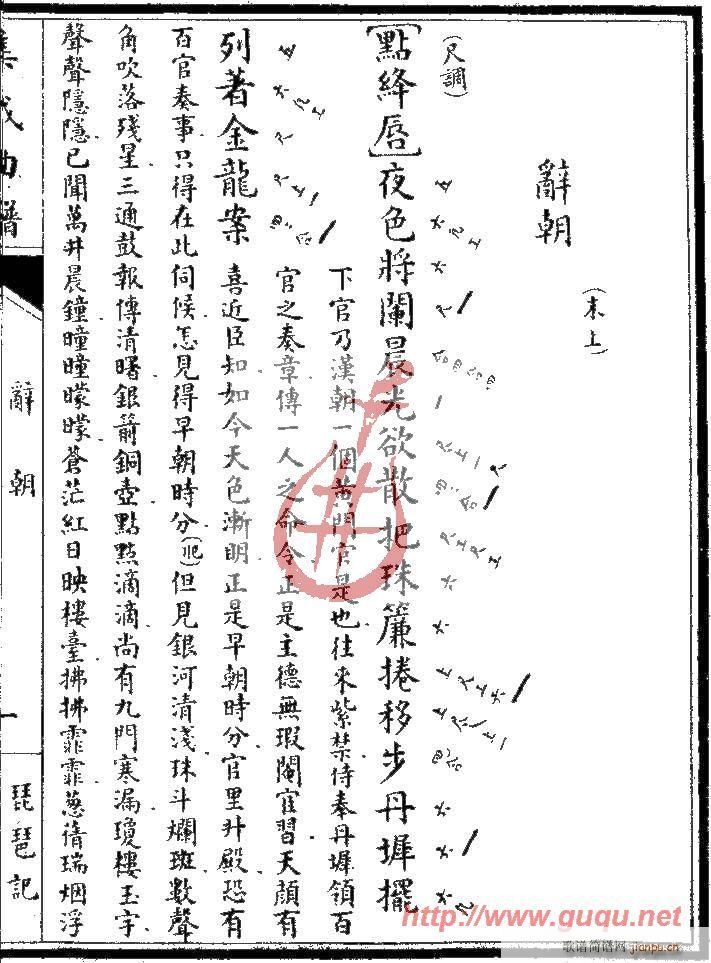 辭朝
(末上)
(尺調)
[點絳唇]夜色將闌晨光欲散把珠簾捲移步丹墀擺
列著金龍案
下官乃漢朝一個黃門官是也往來紫禁侍奉丹墀領百
官之奏章傳一人之命令正是主德無瑕閹宦習天顏有
喜近臣知如今天色漸明正是早朝時分官里升殿恐有
百官奏事只得在此伺候怎見得早朝時分(吅)但見銀河清淺珠斗爛斑數聲
角吹落殘星三通鼓報傳清曙銀箭銅壺點點滴滴尚有九門寒漏瓊樓玉宇
聲聲隱隱已聞萬井晨鐘曈曈曚曚蒼茫紅日映樓臺拂拂霏霏蔥蒨瑞烟浮
集成曲譜
辭朝
一
琵琶記
http://www.guqu.net
歌谱简谱网
jianpu.cn